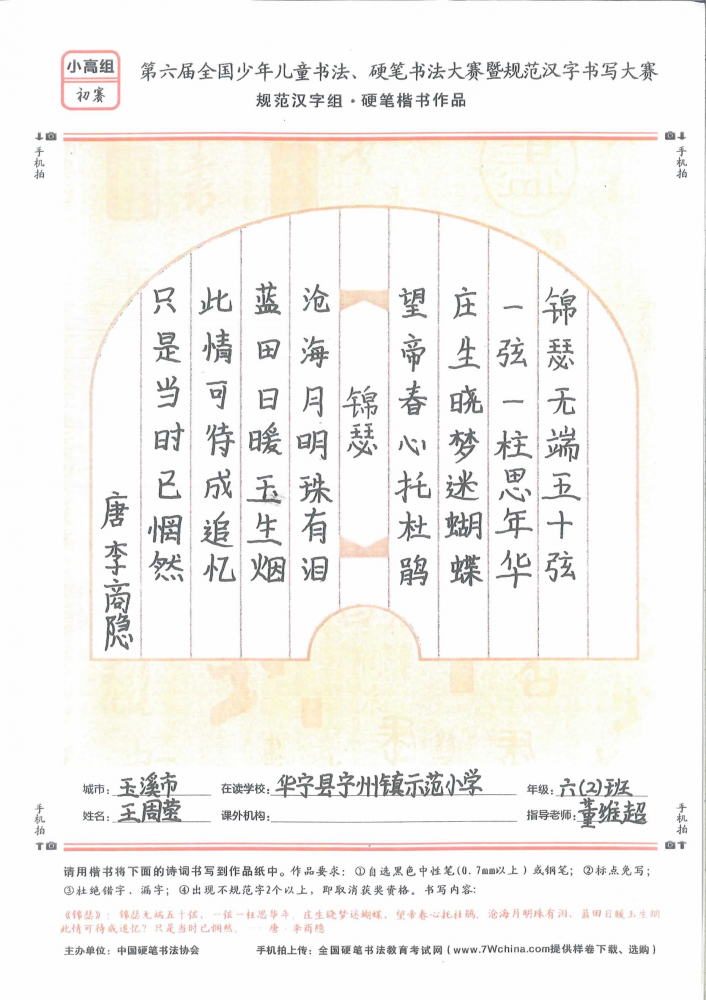 小高组
初赛
第六届全国少年儿童书法、硬笔书法大赛暨规范汉字书写大赛
规范汉字组·硬笔楷书作品
手机拍
手机拍
锦瑟无端五十弦
一弦一柱思年华
庄生晓梦迷蝴蝶
望帝春心托杜鹃
锦瑟
沧海月明珠有泪
蓝田日暖玉生烟
此情可待成追忆
只是当时已惘然
唐 李商隐
手机拍
手机拍
城市：玉溪市 在读学校：华宁县宁州镇示范小学 年级：六(2)班
姓名：王周莹 课外机构： 指导老师：董维超
请用楷书将下面的诗词书写到作品纸中。作品要求：①自选黑色中性笔(0.7mm以上)或钢笔；②标点免写；
③杜绝错字、漏字；④出现不规范字2个以上，即取消获奖资格。书写内容：
《锦瑟》：锦瑟无端五十弦，一弦一柱思华年。庄生晓梦迷蝴蝶，望帝春心托杜鹃。沧海月明珠有泪，蓝田日暖玉生烟
此情可待成追忆？只是当时已惘然。——唐·李商隐
主办单位：中国硬笔书法协会 手机拍上传：全国硬笔书法教育考试网（www.7Wchina.com提供样卷下载、选购）